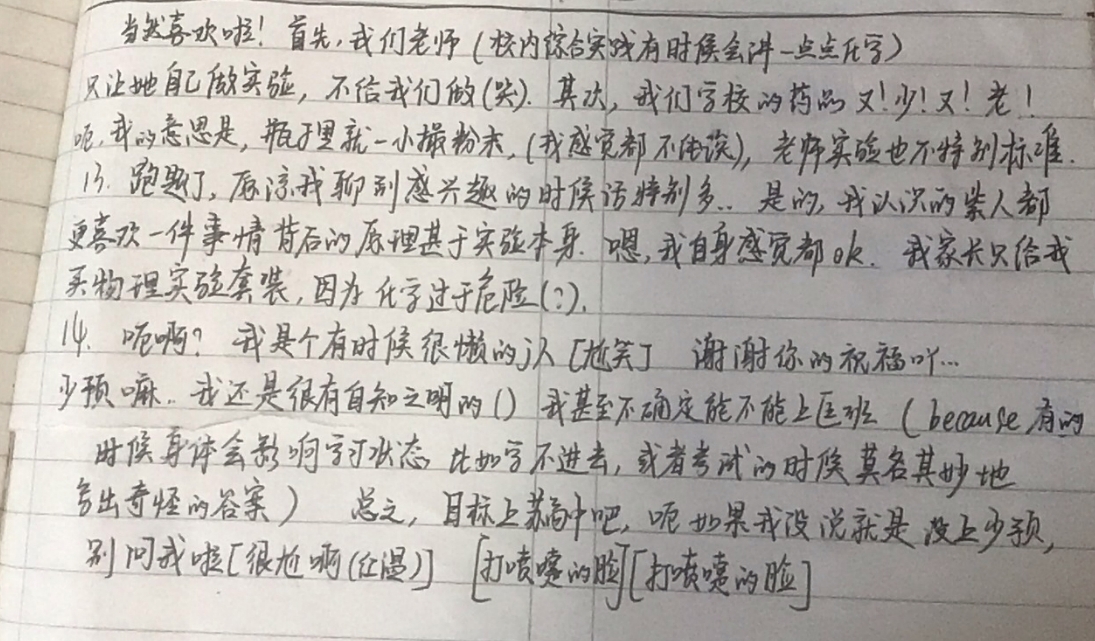 当然喜欢啦！首先，我们老师（校内综合实践有时候会讲一点点化学）
只让她自己做实验，不给我们做（哭）。其次，我们学校的药品又！少！又！老！
呃，我的意思是，瓶子里就一小撮粉末，（我感觉都不能读），老师实验也不特别标准．
13. 跑题了，原谅我聊到感兴趣的时候话特别多.. 是的，我认识的紫人都
更喜欢一件事情背后的原理甚于实验本身．嗯，我自身感觉都ok．我家长只给我
买物理实验套装，因为化学过于危险(?)．
14. 呃啊？我是个有时候很懒的认［尬笑］ 谢谢你的祝福吖…
少预嘛.. 我还是很有自知之明的() 我甚至不确定能不能上匡班（because 有的
时候身体会影响学习状态，比如学不进去，或者考试的时候莫名其妙地
写出奇怪的答案） 总之，目标上苏高中吧，呃如果我没说就是没上少预，
别问我啦［很尬啊(红温)］ ［打喷嚏的脸］［打喷嚏的脸］